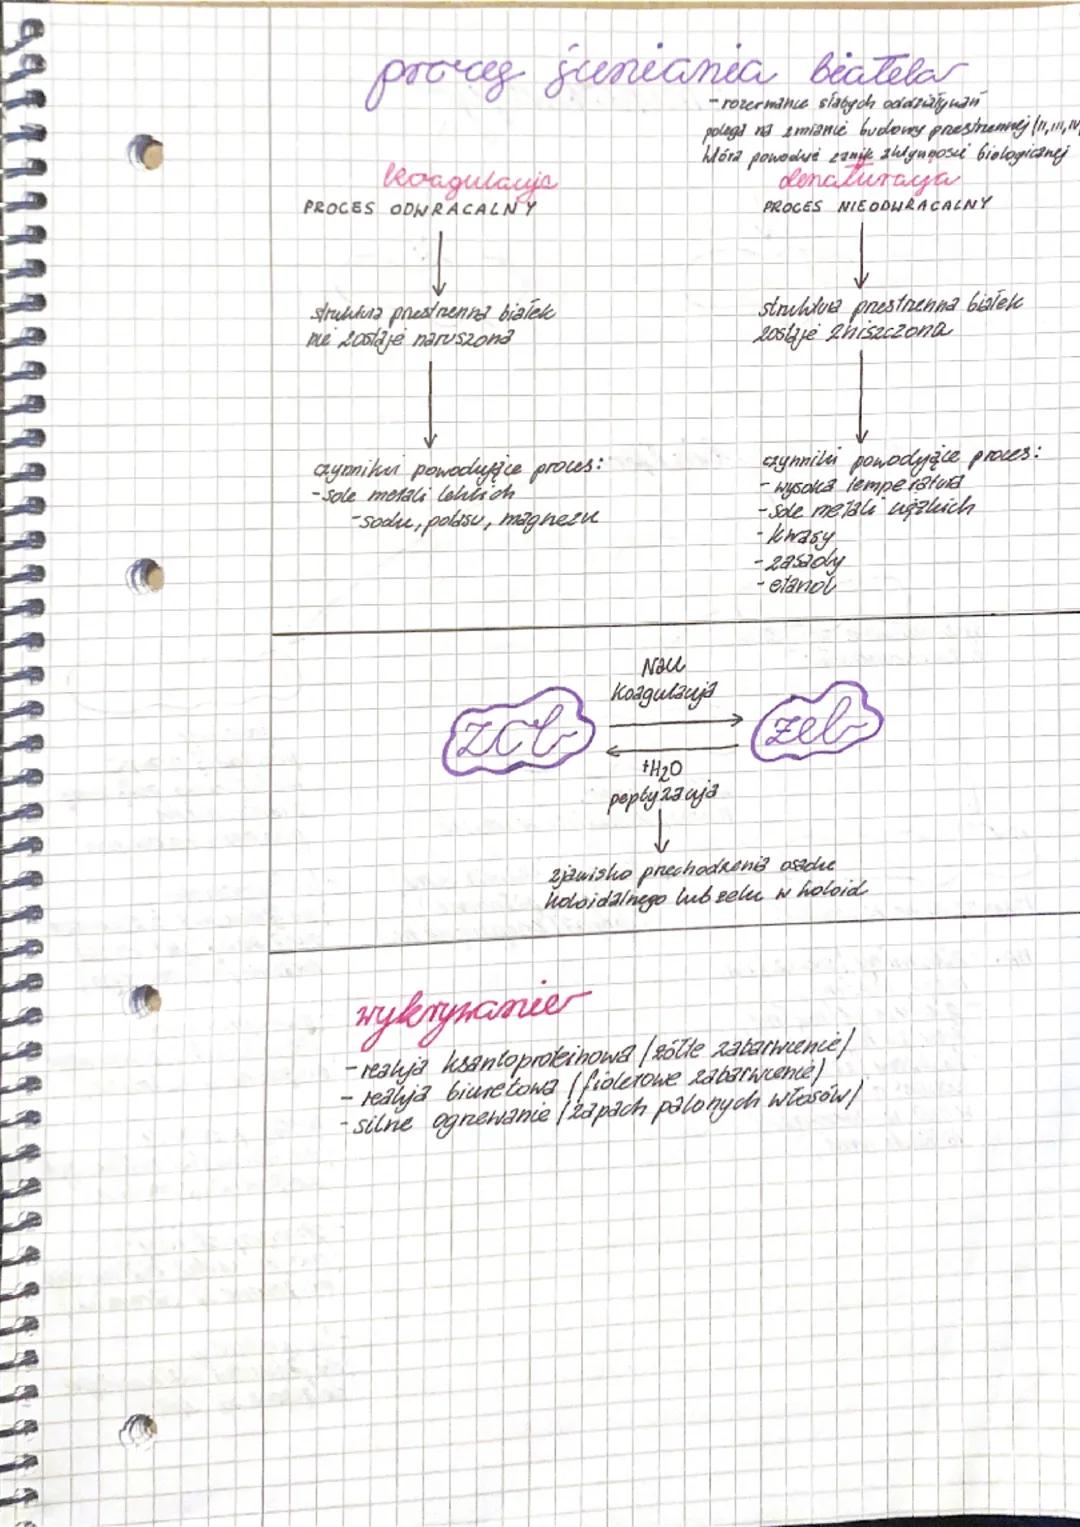 proces ścinania białka
- rozerwanie słabych oddziaływań
polega na zmianie budowy przestrzennej (II, III, IV
która powoduje zanik aktywności biologicznej
koagulacja
PROCES ODWRACALNY
struktura przestrzenna białek
nie zostaje naruszona
czynniki powodujące proces:
- sole metali lekkich
- sodu, potasu, magnezu
denaturacja
PROCES NIEODWRACALNY
struktura przestrzenna białek
zostaje zniszczona
czynniki powodujące proces:
- wysoka temperatura
- sole metali ciężkich
- kwasy
- zasady
- etanol
NaCl
koagulacja
zol
żel
+H₂O
peptyzacja
zjawisko przechodzenia osadu
koloidalnego lub żelu w koloid
wykrywanie
- reakcja ksantoproteinowa /żółte zabarwienie/
- reakcja biuretowa /fioletowe zabarwienie/
- silne ogrzewanie /zapach palonych włosów/